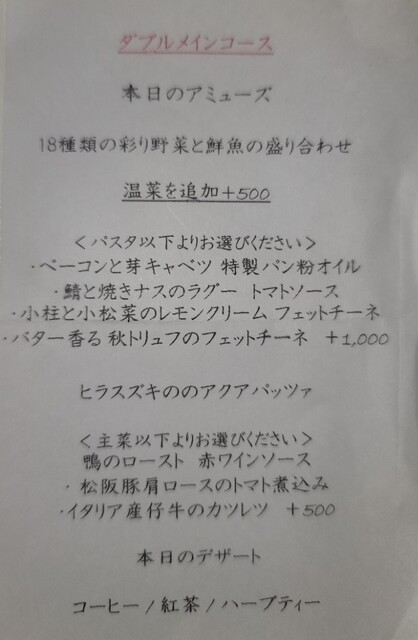 ダブルメインコース
本日のアミューズ
18種類の彩り野菜と鮮魚の盛り合わせ
温菜を追加+500
＜パスタ以下よりお選びください＞
・ベーコンと芽キャベツ 特製パン粉オイル
・鯖と焼きナスのラグー トマトソース
・小柱と小松菜のレモンクリーム フェットチーネ
・バター香る 秋トリュフのフェットチーネ +1,000
ヒラスズキののアクアパッツァ
＜主菜以下よりお選びください＞
鴨のロースト 赤ワインソース
・松阪豚肩ロースのトマト煮込み
・イタリア産仔牛のカツレツ +500
本日のデザート
コーヒー / 紅茶 / ハーブティー